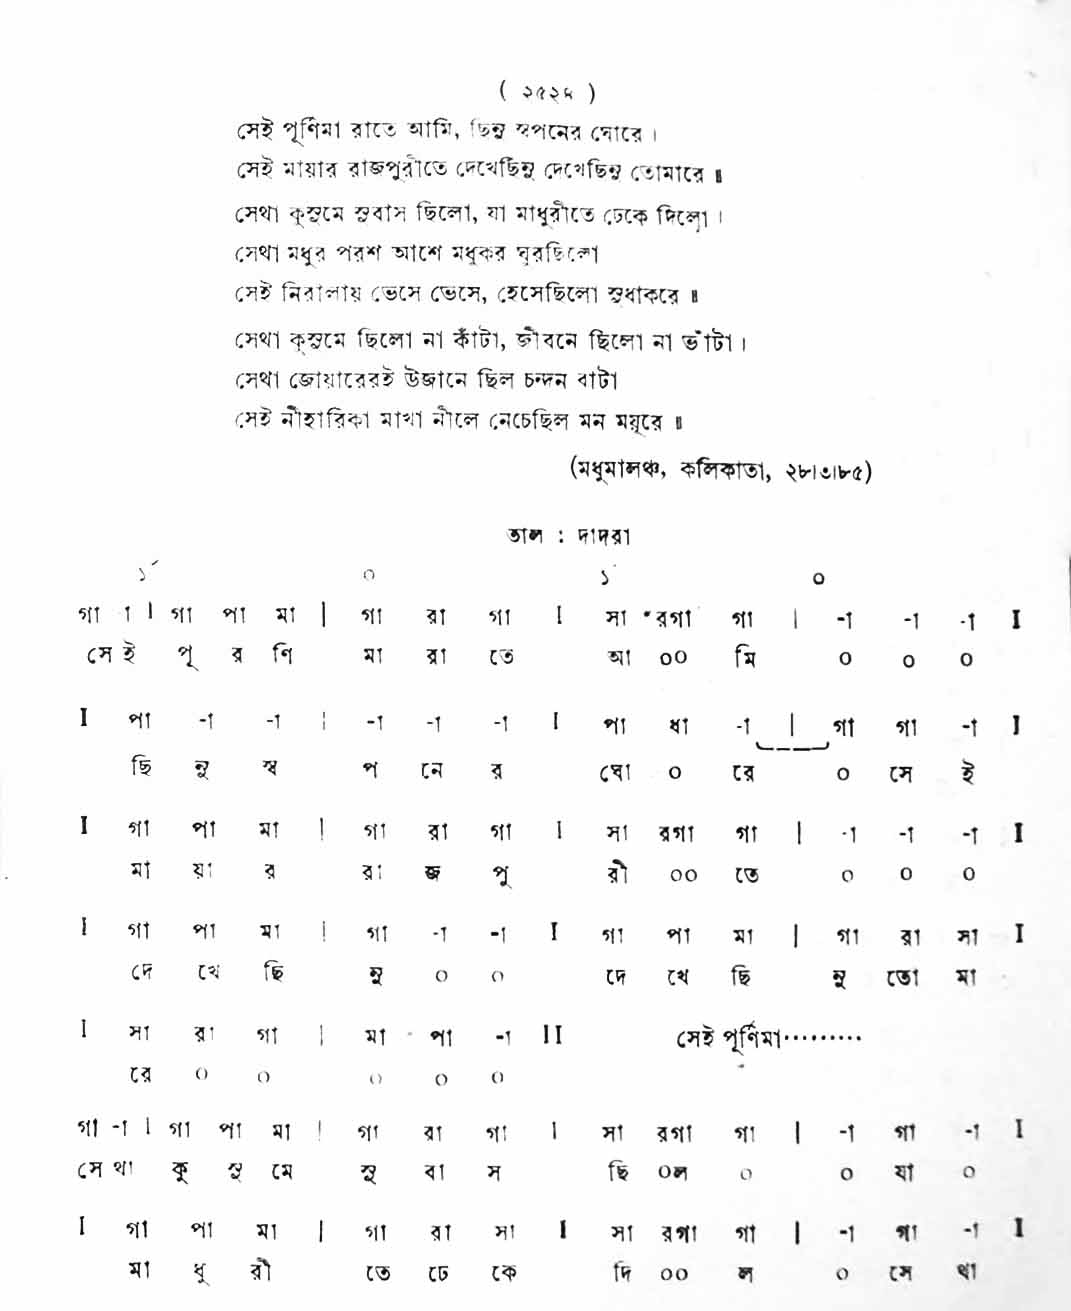 ( ২৫২৭ )
সেই পূর্ণিমা রাতে আমি, ছিনু স্বপনের ঘোরে ।
সেই মায়ার রাজপুরীতে দেখেছিনু দেখেছিনু তোমারে ॥
সেথা কুসুমে সুবাস ছিলো, যা মাধুরীতে ঢেকে দিলো ।
সেথা মধুর পরশ আশে মধুকর ঘুরছিলো
সেই নিরালায় ভেসে ভেসে, হেসেছিলো সুধাকরে ॥
সেথা কুসুমে ছিলো না কাঁটা, জীবনে ছিলো না ভাঁটা ।
সেথা জোয়ারেরই উজানে ছিল চন্দন বাটা
সেই নীহারিকা মাখা নীলে নেচেছিল মন ময়ূরে ॥
(মধুমালঞ্চ, কলিকাতা, ২৮।৩।৮৫)
তাল : দাদরা
১´ ০ ১ ০
গা া । গা পা মা | গা রা গা I সা রগা গা | -া -া -া I
সে ই পূ র ণি মা রা তে আ ০০ মি ০ ০ ০
I পা -া -া | -া -া -া I পা ধা -া | গা গা -া I
ছি নু স্ব প নে র ঘো ০ রে ০ সে ই
I গা পা মা | গা রা গা I সা রগা গা | -া -া -া I
মা য়া র রা জ পু রী ০০ তে ০ ০ ০
I গা পা মা | গা -া -া I গা পা মা | গা রা সা I
দে খে ছি নু ০ ০ দে খে ছি নু তো মা
I সা রা গা | মা পা -া II সেই পূর্ণিমা.........
রে ০ ০ ০ ০ ০
গা -া । গা পা মা | গা রা গা I সা রগা গা | -া গা -া I
সে থা কু সু মে সু বা স ছি ০ল ০ ০ যা ০
I গা পা মা | গা রা সা I সা রগা গা | -া গা -া I
মা ধু রী তে ঢে কে দি ০০ ল ০ সে থা